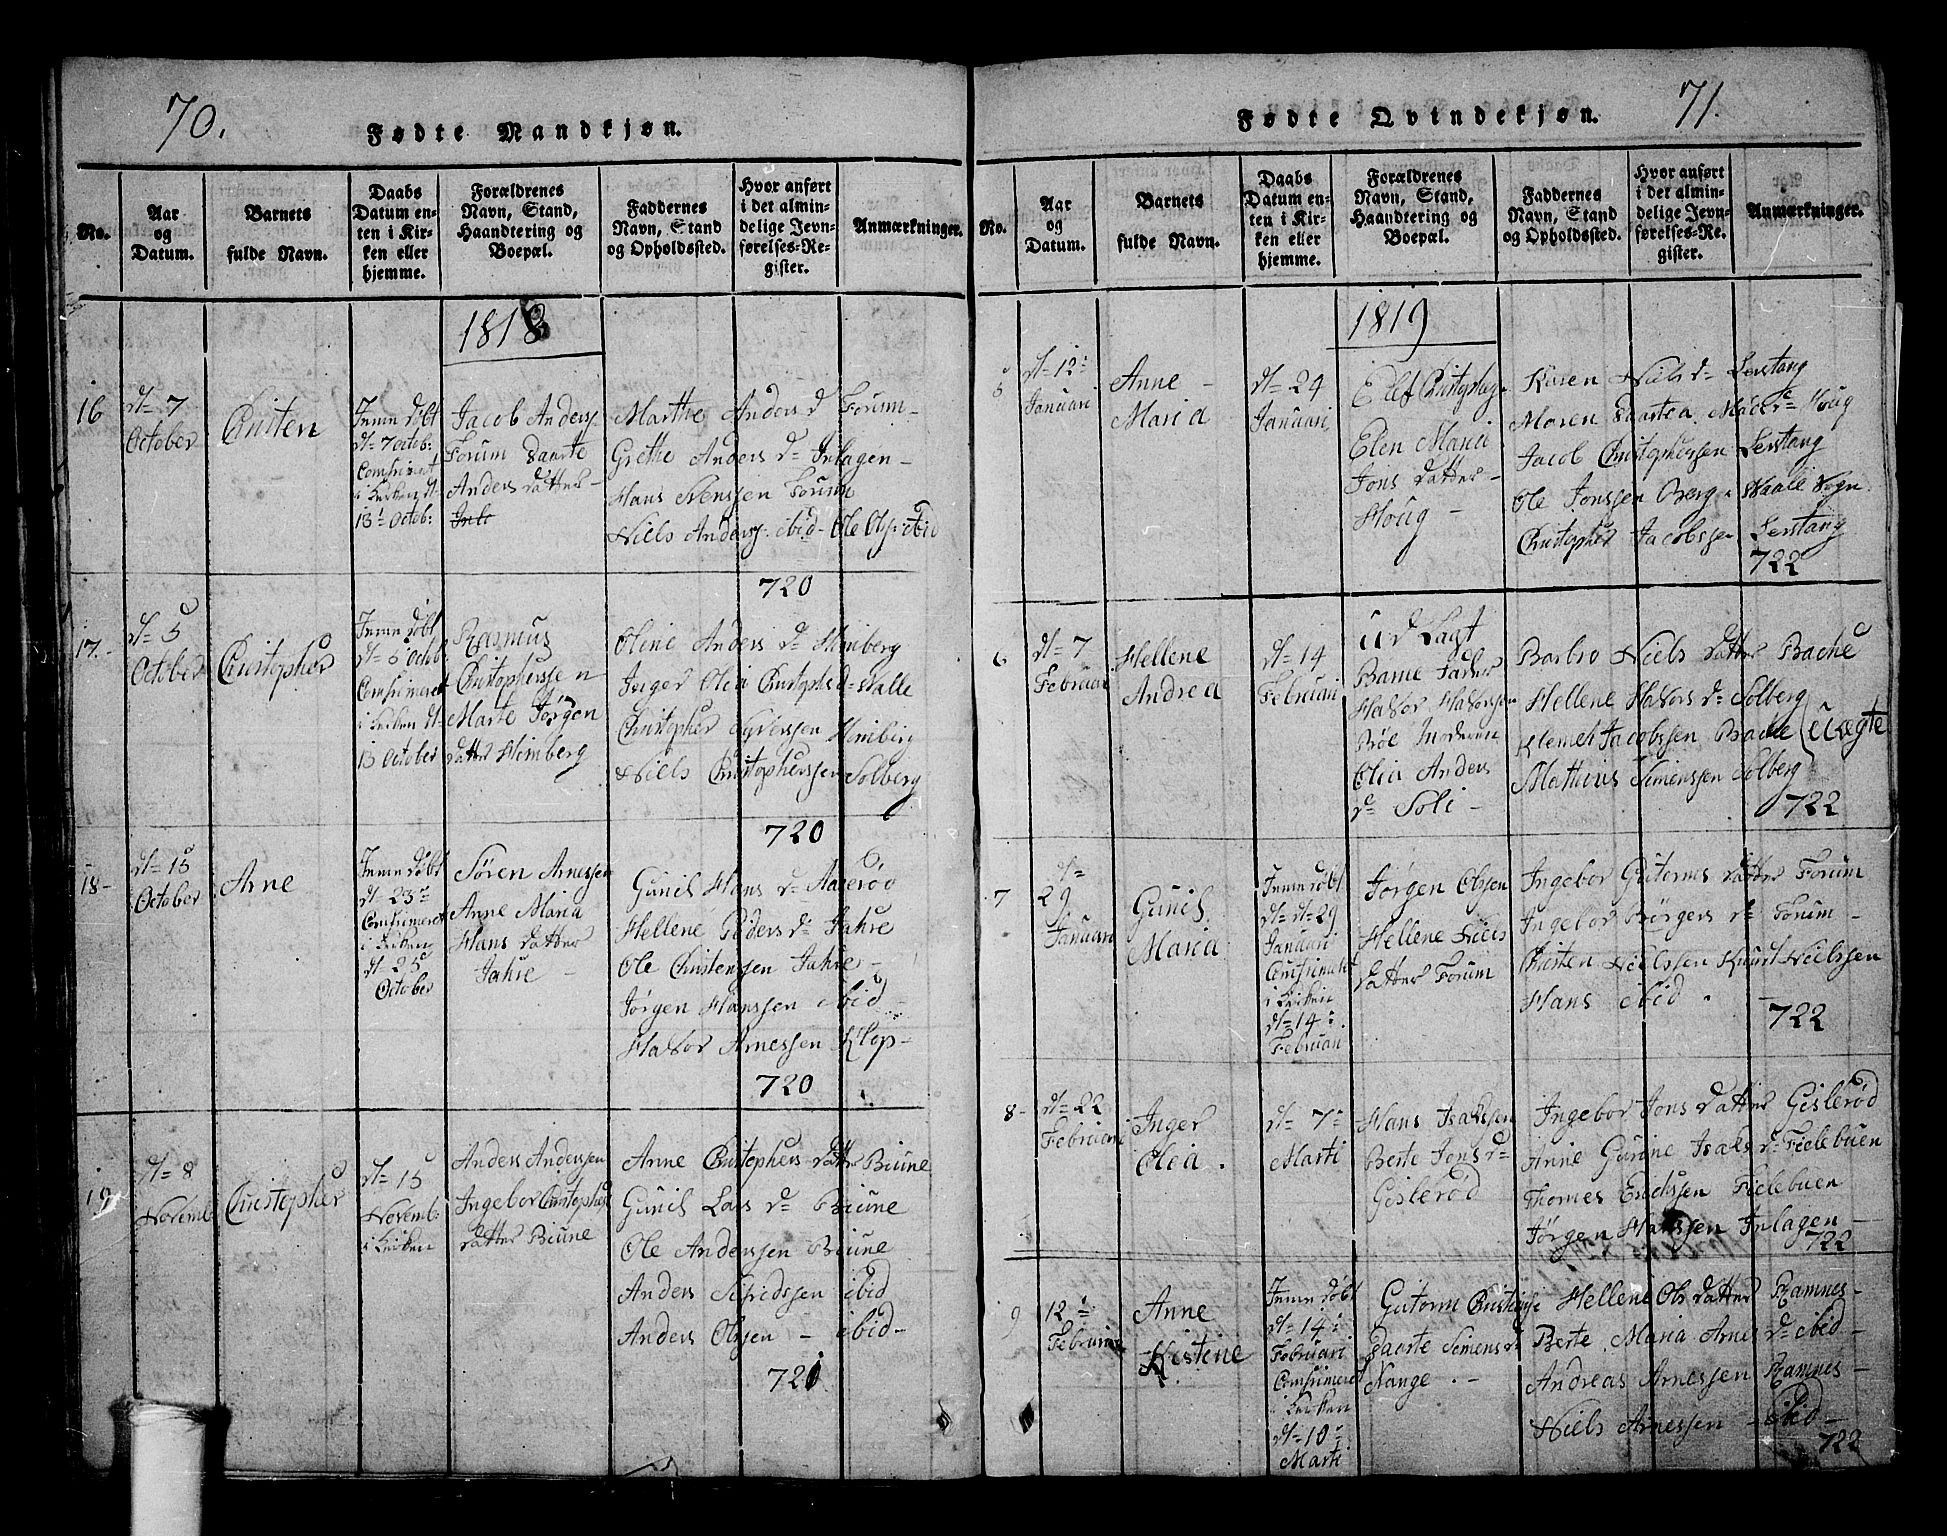 70.
Fødte Mandkjøn.
No.
Aar
og
Datum.
Barnets
fulde Navn.
Daabs
Datum en-
ten i Kir-
ken eller
hjemme.
Forældrenes
Navn, Stand,
Haandtering og
Boepæl.
Faddernes
Navn, Stand
og Opholdssted.
Hvor anført
i det almin-
delige Jevn-
førelses-Re-
gister.
Anmærkninger.
1818
16
d= 7
October
Christen
Inme døbt
d= 7 octob:
Comfirmeret
i Kirken d=
13 Octob:
Jacob Anders
Forum Daarte
Anders datter
Marthe Anders d Forum
Grethe Anders d= Inlagen
Hans Svenssen Forum
Niels Anders ibid Ole Ols ibid
720
17.
d= 5
October
Christopher
Inme døbt
d= 5 Octob
Comfirmeret
i Kirken d=
13 October
Rasmus
Christopherssen
Marte Jørgen
datter Himberg
Oline Anders d= Himberg
Inger Olia Christophs d= Walle
Christopher Syverssen Himberg
Niels Christopherssen Solberg
720
18
d= 15
October
Arne
Inme døbt
d= 23
Comfirmeret
i Kirken
d= 25
October
Søren Arnessen
Anne Maria
Hans datter
Jahre
Gunil Hans d= Aaserød
Hellene Peders d= Jahre
Ole Christenssen Jahre
Jørgen Hanssen ibid
Halvor Arnessen Klop
720
19
d= 8
Novemb
Christopher
d= 15
Novemb:
i Kirken
Anders Anderssen
Ingebor Christophers
datter Biune
Anne Christophers datter Biune
Gunil Lars d= Biune
Ole Anderssen Biune
Anders Sifredssen ibid
Anders Olssen - ibid
721
71.
Fødte Qvindekjøn.
No.
Aar
og
Datum.
Barnets
fulde Navn.
Daabs
Datum en-
ten i Kir-
ken eller
hjemme.
Forældrenes
Navn, Stand,
Haandtering og
Boepæl.
Faddernes
Navn, Stand
og Opholdssted.
Hvor anført
i det almin-
delige Jevn-
førelses-Re-
gister.
Anmærkninger.
1819
5
d= 12
Januari
Anne
Maria
d= 24
Januari
Elef Christophs
Elen Maria
Jons datter
Houg
Karen Niels d= Lerstang
Maren Daartea d= Houg
Jacob Christopherssen Lerstang
Ole Jonssen Berg Waale Sogn
Christopher Jacobssen Lerstang
722
6
d= 7
Februari
Hellene
Andrea
d= 14
Februari
Ud Lagt
Barne Fader
Halvor Halvorsen
Bøe Moderen
Olia Anders
d= Soli
Barbro Niels datter Bache
Hellene Halvors d= Solberg
Klemet Jacobssen Bache
Mathius Simenssen Solberg
Uægte
722
7
d=
29
Januari
Gunil
Maria
Inme døbt
d= 29
Januari
Comfirmeret
i Kirken
d= 14
Februari
Jørgen Olssen
Hellene Niels
datter Forum
Ingebor Gutorms datter Forum
Ingebor Børgers d= Forum
Christen Nielssen Knut Nielssen
Hans ibid
722
8
d= 22
Februari
Inger
Olea.
d= 7
Marti
Hans Isakssen
Berte Jons d=
Gislerød
Ingebor Jons datter Gislerød
Anne Gurine Isaks d= Fielebuen
Thomes Erichssen Fielebuen
Jørgen Hanssen Inlagen
722
9
12
Februari
Anne
Kistene
Inme døbt
d= 14
Februari
Comfirmeret
i Kirken
d= 10
Marti
Gutorm Christens
Daarte Simens d=
Nange
Hellene Ols datter Ramnes
Berte Maria Arnes d= ibid
Andreas Arnessen Ramnes
Niels Arnessen ibid
722